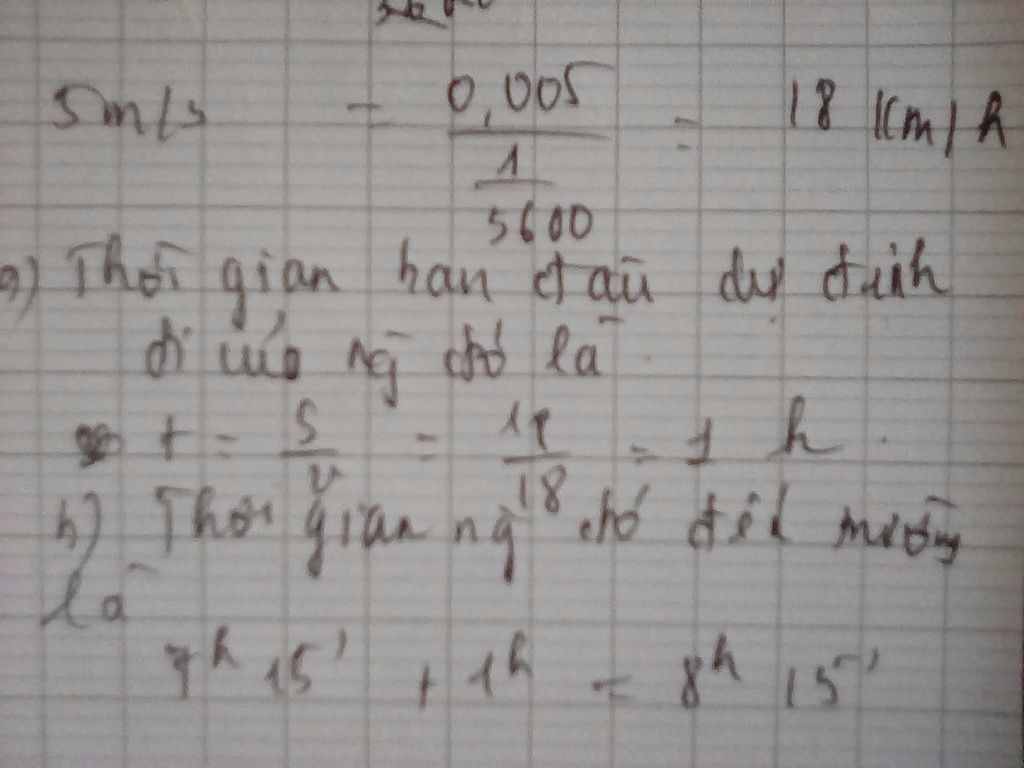 5m/s = 0,005 / 1/3600 = 18 Km/h
a) Thời gian ban đầu dự định
đi của ng đó là
t = S/v = 18/18 = 1 h.
b) Thời gian ng đó đến mương
là
7h 15' + 1h = 8h 15'